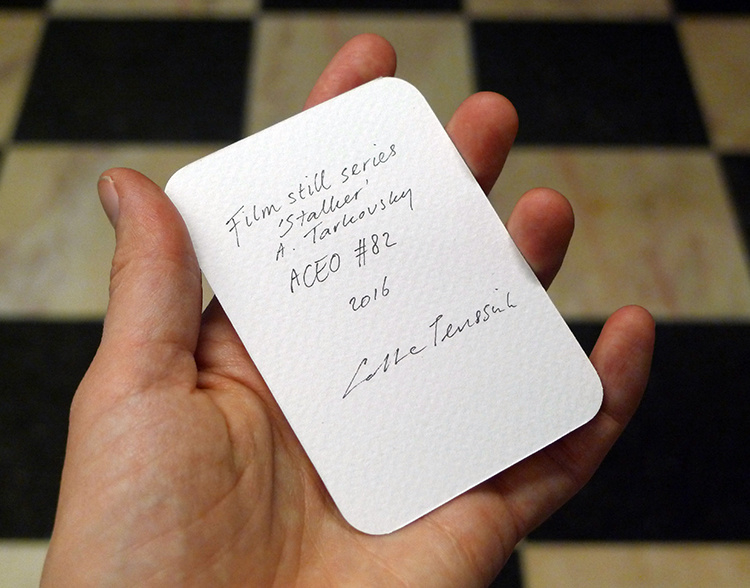 Film still series
'Stalker'
A. Tarkovsky
ACEO #82
2016